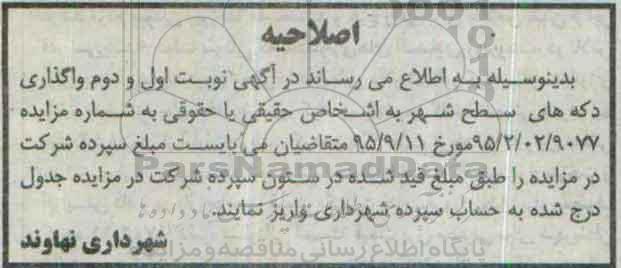 اصلاحیه
بدینوسیله به اطلاع می رساند در آگهی نوبت اول و دوم واگذاری
دکه های سطح شهر به اشخاص حقیقی یا حقوقی به شماره مزایده
۹۵/۲/۰۲/۹۰۷۷مورخ ۹۵/۹/۱۱ متقاضیان می بایست مبلغ سپرده شرکت
در مزایده را طبق مبلغ قید شده در ستون سپرده شرکت در مزایده جدول
درج شده به حساب سپرده شهرداری واریز نمایند.
شهرداری نهاوند
ParsNamadData
پایگاه اطلاع رسانی مناقصه و مزایده